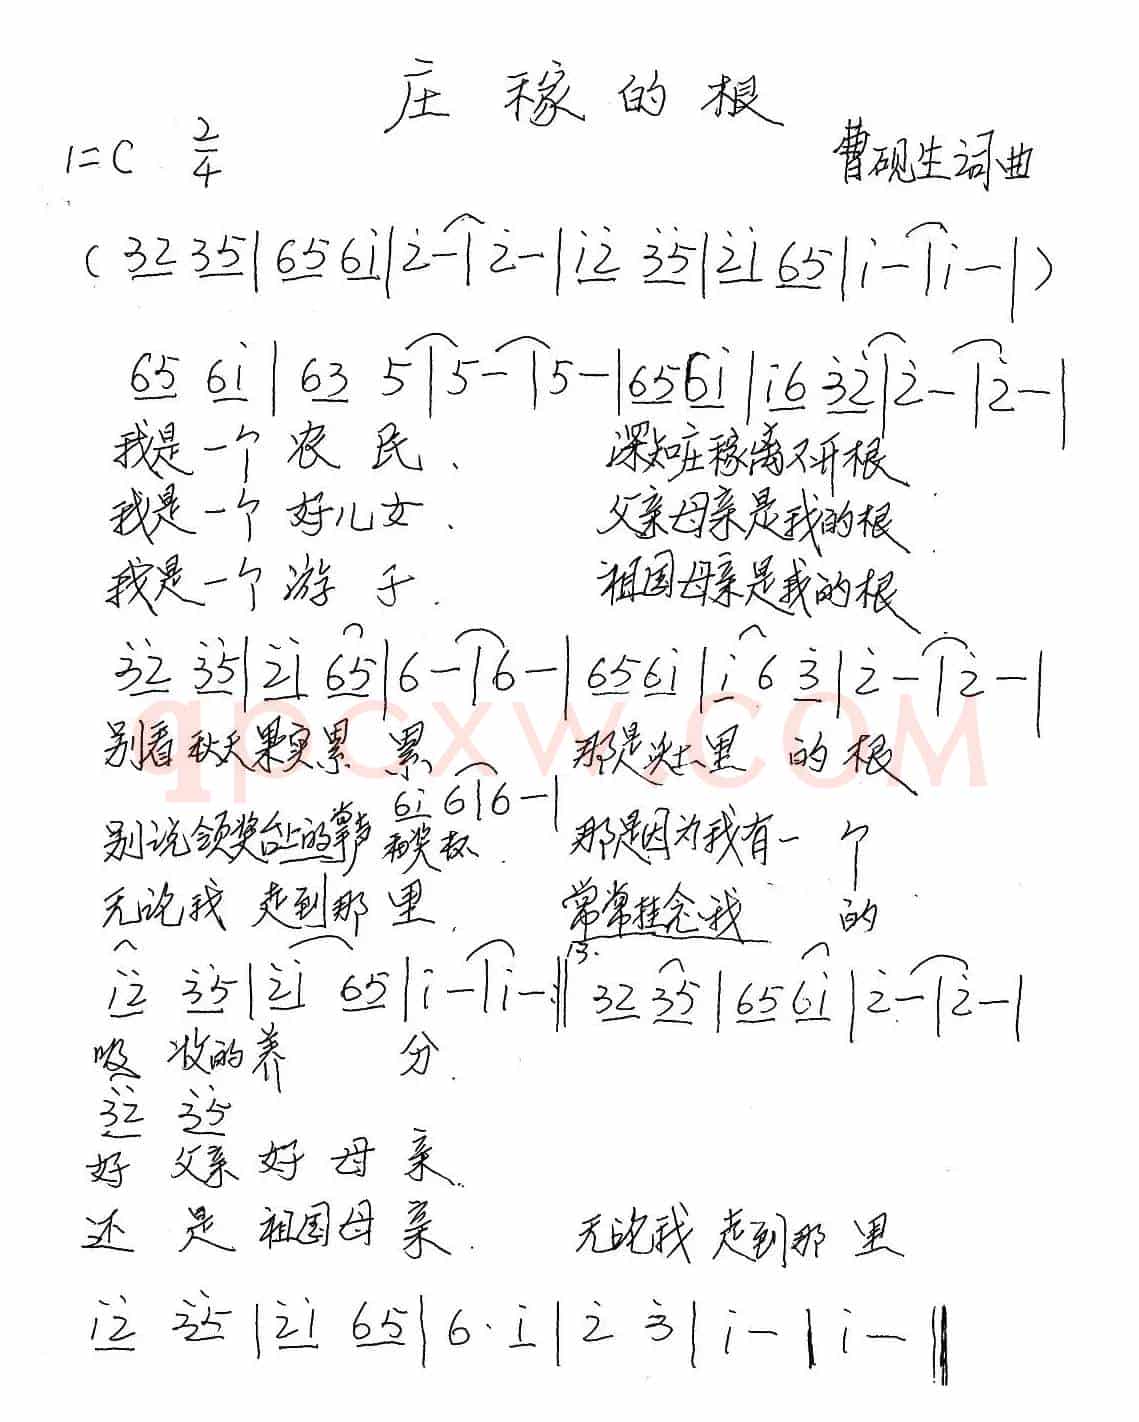 庄稼的根
1=C 2/4
曹砚生词曲
( 32 35 | 65 6i | 2̇ - | 2̇ - | i2̇ 3̇5̇ | 2̇i 65 | i - | i - | )
65 6i | 63 5 | 5 - | 5 - | 65 6i | i6 3̇2̇ | 2̇ - | 2̇ - |
我是一个农民、 深知庄稼离不开根
我是一个好儿女、 父亲母亲是我的根
我是一个游子. 祖国母亲是我的根
3̇2̇ 3̇5̇ | 2̇i 65 | 6 - | 6 - | 65 6i | i 6 3̇ | 2̇ - | 2̇ - |
别看秋天果实累累 那是 里的根
6i 6 | 6 - |
别说领奖台上的掌声和奖杯. 那是因为我有一个
无论我走到那里. 常常挂念我的
i2̇ 3̇5̇ | 2̇i 65 | i - | i - :‖ 13. 32 35 | 65 6i | 2̇ - | 2̇ - |
吸收的养分.
3̇2̇ 3̇5̇
好父亲好母亲..
还是祖国母亲. 无论我走到那里
i2̇ 3̇5̇ | 2̇i 65 | 6· i | 2̇ 3̇ | i - | i - ‖
qpcxw.COM